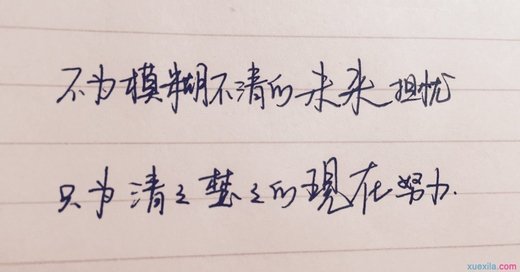 不为模糊不清的未来担忧
只为清之楚之的现在努力.
xuexila.com